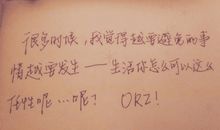 很多时候，我觉得越要避免的事
情越要发生——生活你怎么可以这么
任性呢…呢？ ORZ！